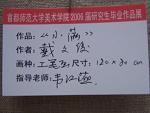 首都师范大学美术学院2006届研究生毕业作品展
作品:《小满》
作者:戴文俊
画种:工笔 尺寸:120×80cm
指导老师:韦红燕